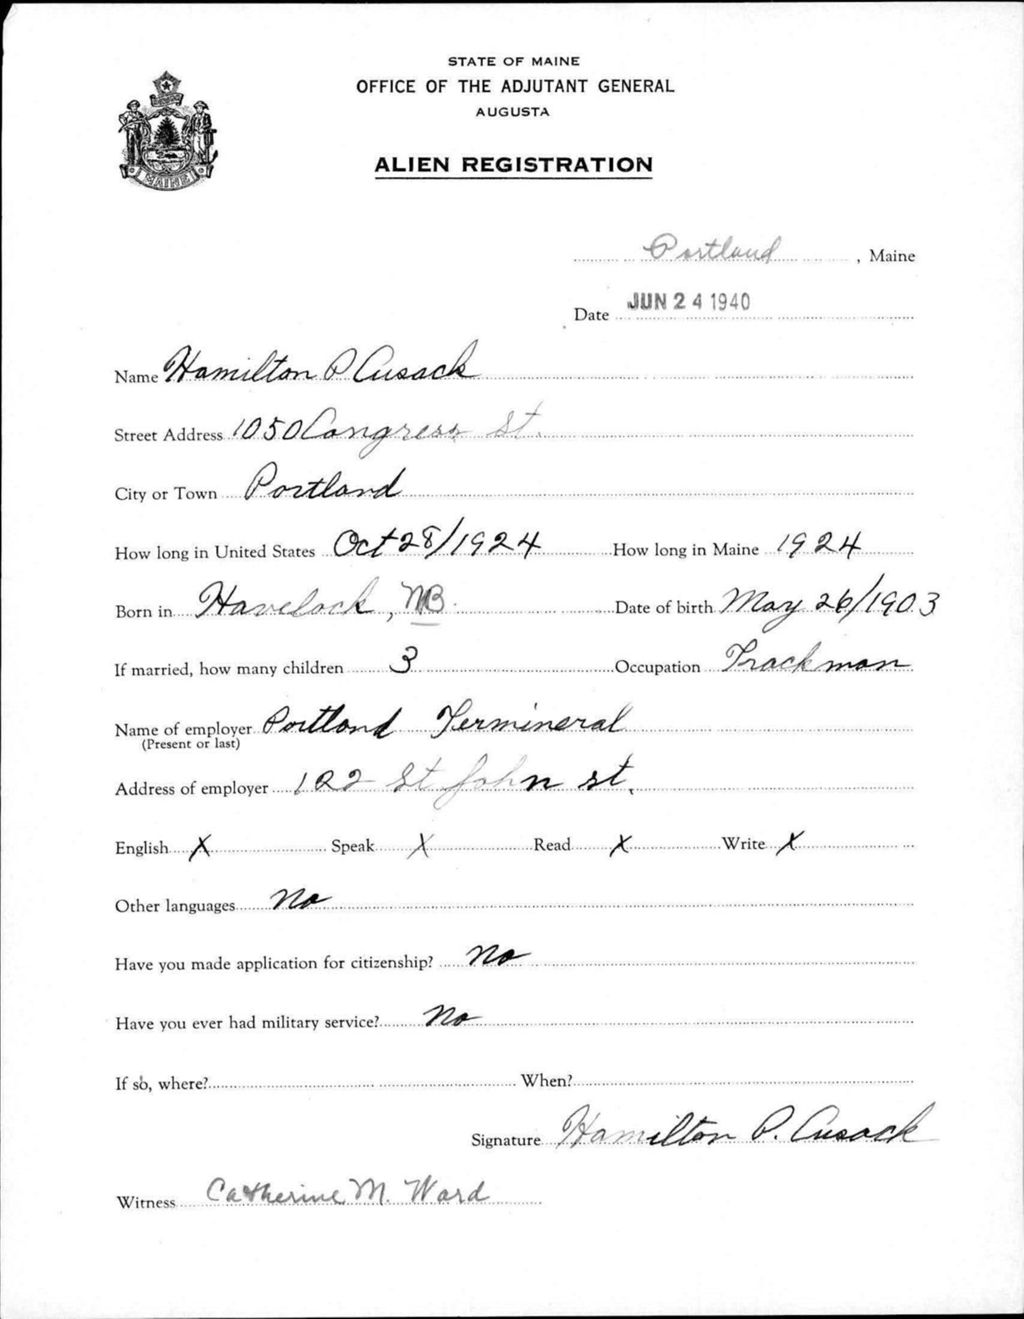 STATE OF MAINE
OFFICE OF THE ADJUTANT GENERAL
AUGUSTA
ALIEN REGISTRATION
MAINE
Portland, Maine
Date JUN 24 1940
Name Hamilton P Cusack
Street Address 1050 Congress St.
City or Town Portland
How long in United States Oct 28/1924 How long in Maine 1924
Born in Havelock, NB. Date of birth May 26/1903
If married, how many children 3 Occupation Trackman
Name of employer Portland Termineral
(Present or last)
Address of employer 122 St John st.
English X Speak X Read X Write X
Other languages No
Have you made application for citizenship? No
Have you ever had military service? No
If so, where? When?
Signature Hamilton P. Cusack
Witness Catherine M. Ward